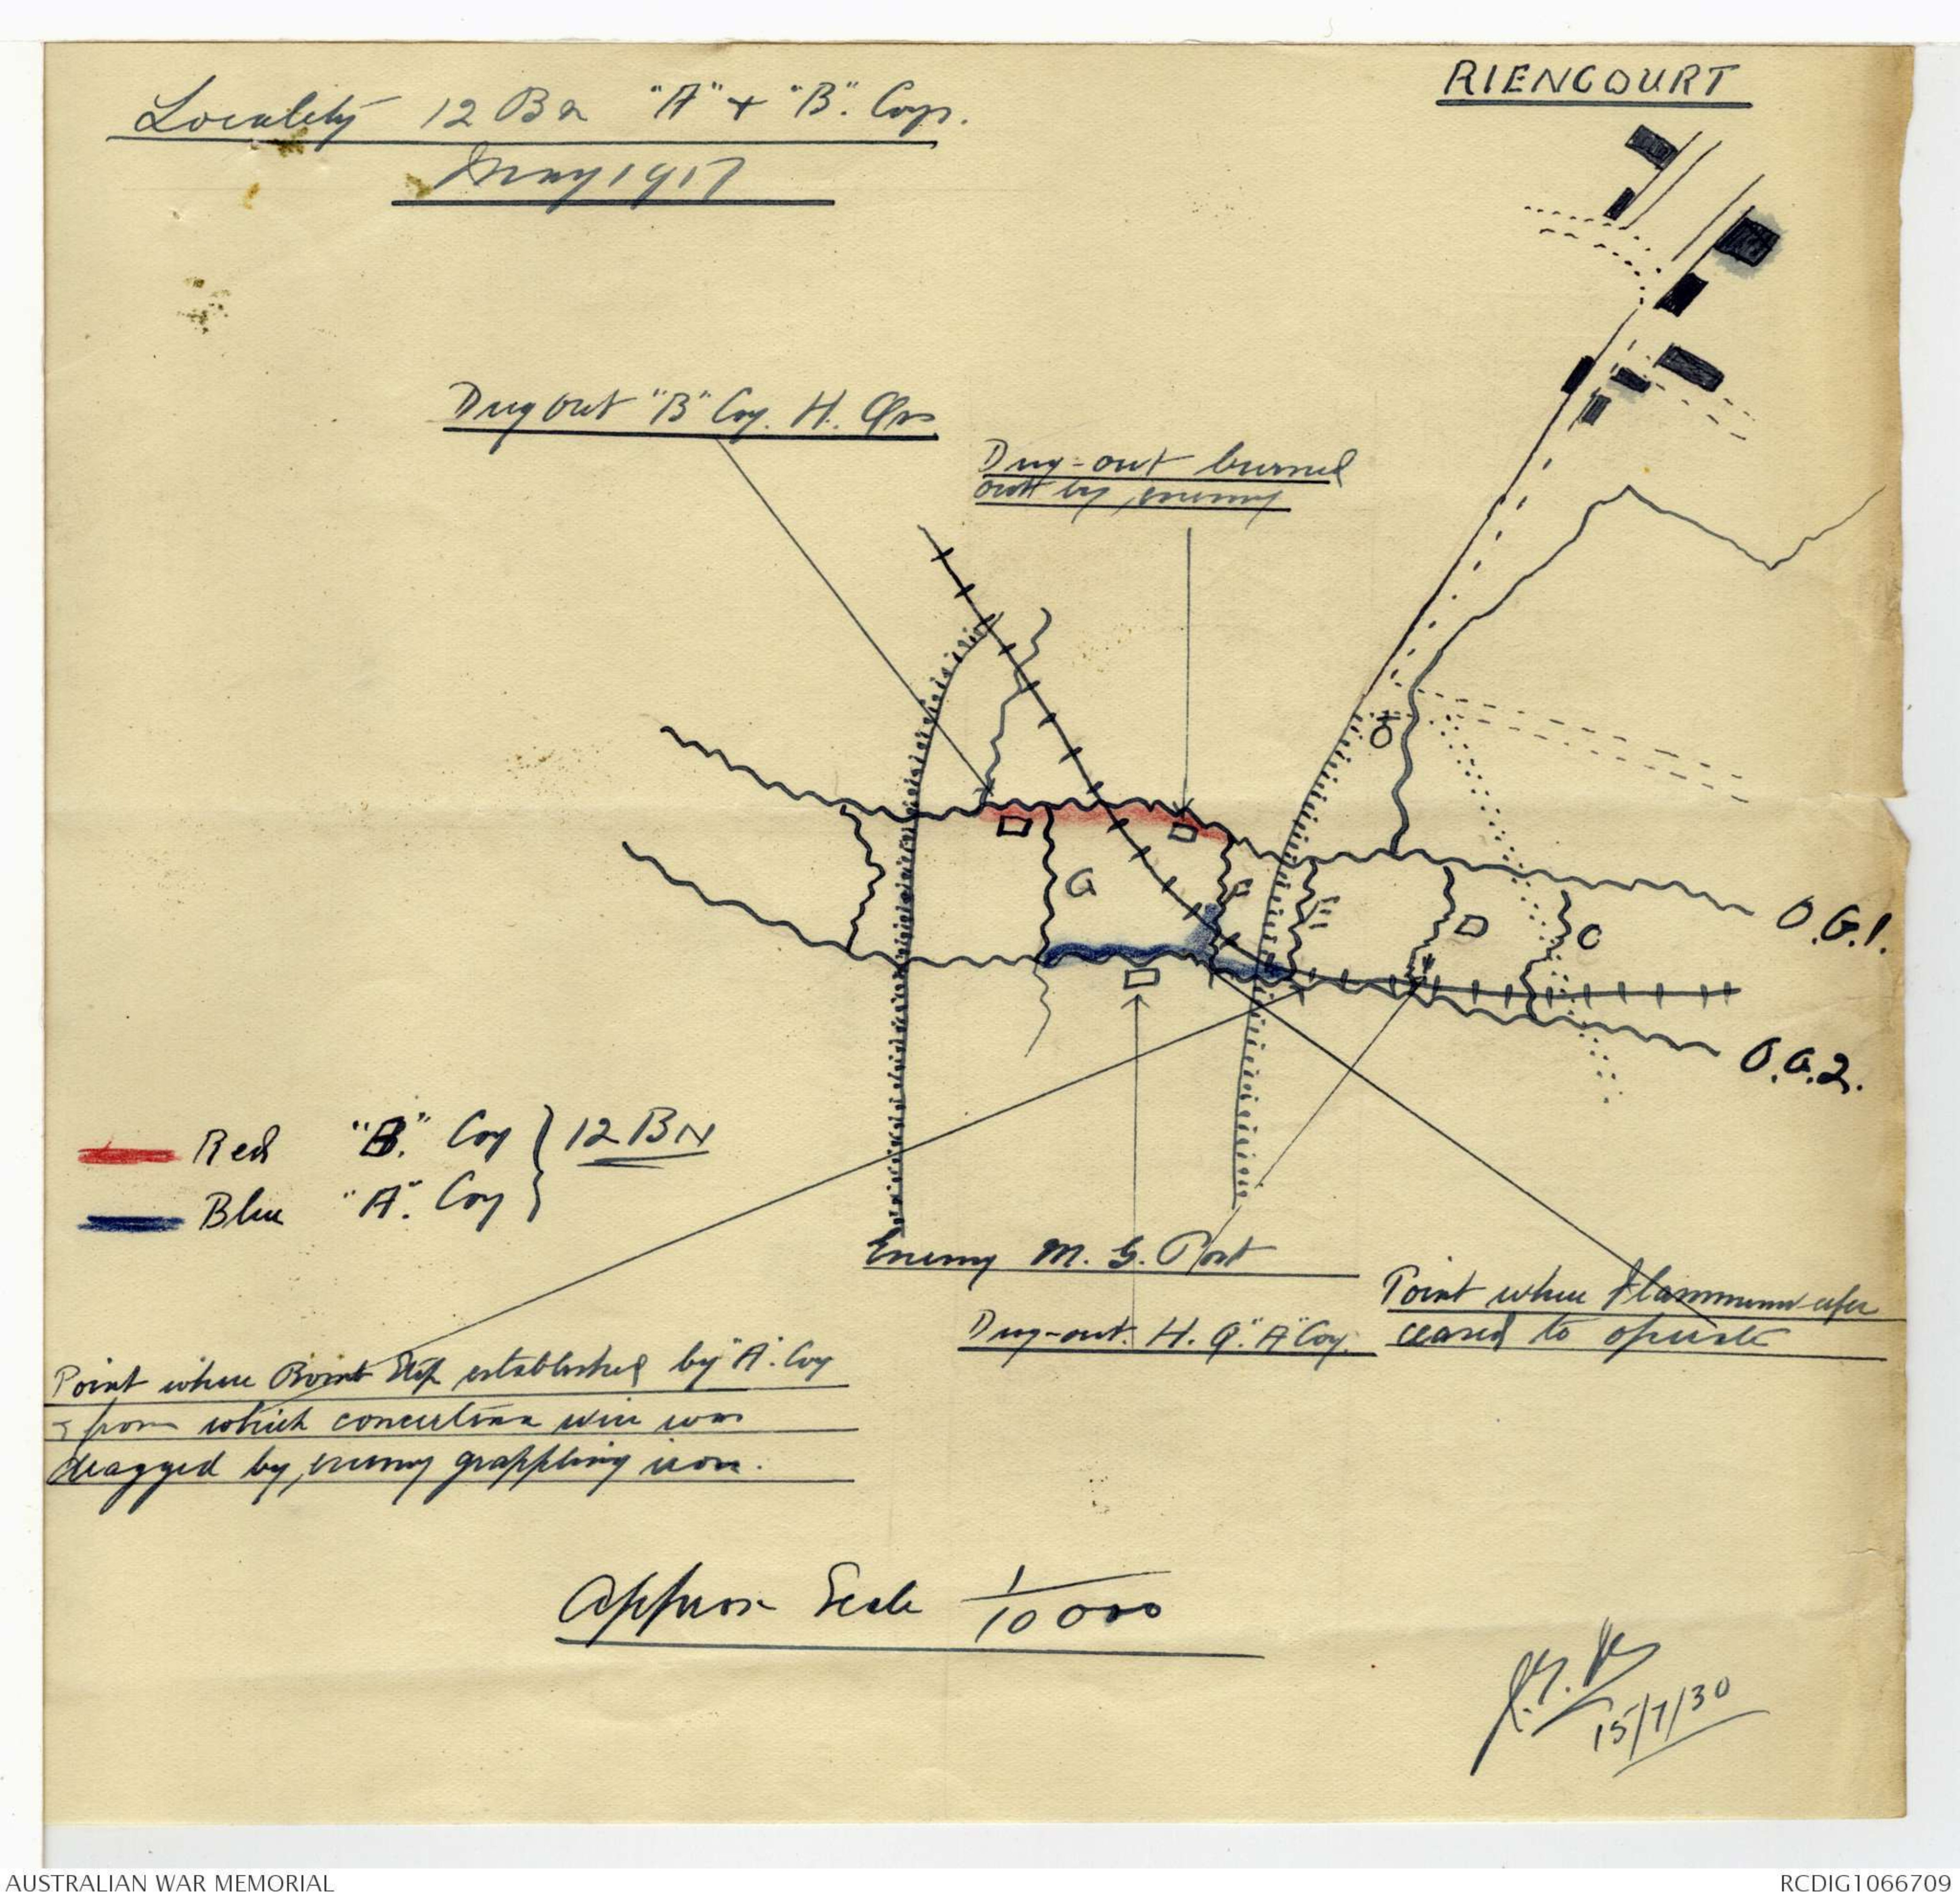 Locality 12 Bn "A" + "B". Coys.
May 1917
RIENCOURT
Dug out "B" Coy. H. Qrs
Dug-out burned
out by enemy
G
F
E
D
C
O.G.1.
O.G.2.
Red "B." Coy
12 BN
Blue "A". Coy
Enemy M. G. Post
Dug-out. H. Q. "A" Coy.
Point where flammenwerfer
ceased to operate
Point where Bomb Stop established by "A". Coy
& from which concertina wire was
dragged by enemy grappling iron.
Approx Scale 1/10000
15/7/30
AUSTRALIAN WAR MEMORIAL
RCDIG1066709